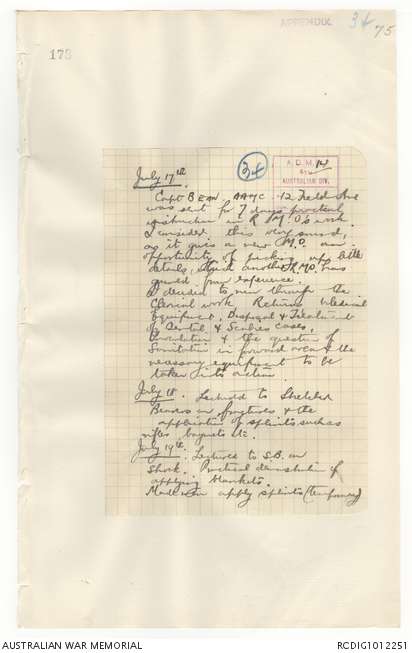 APPENDIX 34
75
173
34
A.D.M.
AUSTRALIAN DIV.
July 17th.
Capt BEAN AAMC 12 Field Amb
was sent for 7 days practical
instruction in R.M.O's work.
I consider this very sound,
as it gives a new M.O. an
opportunity of picking up little
details, which another R.M.O. has
gained from experience.
I decided to run through the
Clerical work Returns Medical
Equipment, Disposal & Treatment
of Dental & Scabies cases,
Inoculation & the question of
Sanitation in forward area & the
necessary equipment to be
taken into action.
July 18. Lectured to Stretcher
Bearers on fractures & the
application of splints such as
rifles bayonets etc.
July 19th. Lectured to S.B. on
Shock. Practical demonstration of
applying blankets.
Made men apply splints (temporary)
AUSTRALIAN WAR MEMORIAL
RCDIG1012251